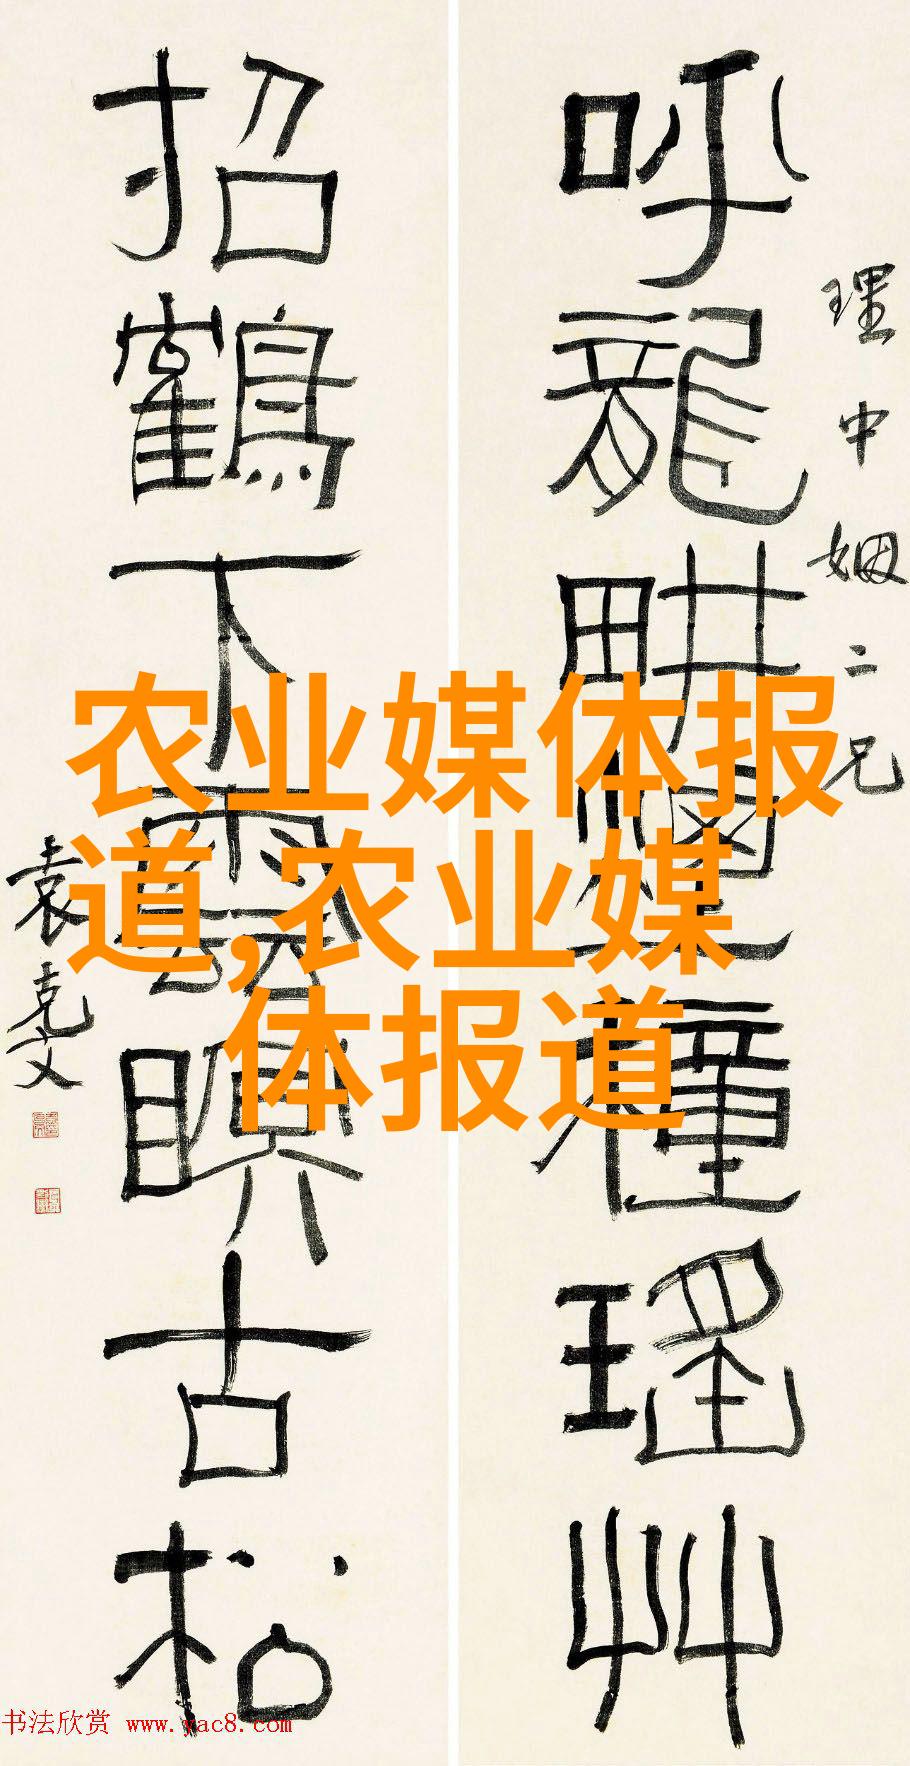 呼龍耕煙種瑤艸
理中姻二兄
招鶴下雲瞑古松
袁克文
农业媒体报
道,农业媒
体报道
书法欣赏 www.yac8.com